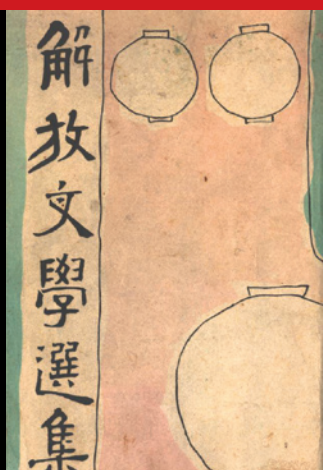 解放文學選集